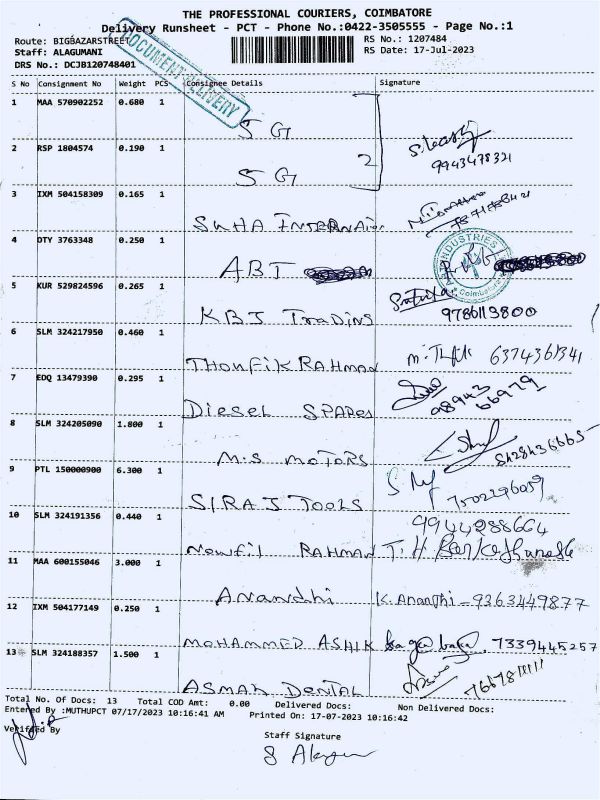 THE PROFESSIONAL COURIERS, COIMBATORE
Delivery Runsheet - PCT - Phone No.:0422-3505555 - Page No.:1
Route: BIGBAZARSTREET
RS No.: 1207484
Staff: ALAGUMANI
RS Date: 17-Jul-2023
DRS No.: DCJB120748401
DOCUMENT DELIVERY
S No Consignment No Weight PCS Consignee Details Signature
1 MAA 570902252 0.680 1
SG
2 RSP 1804574 0.190 1
2
9943478321
SG
3 IXM 504158309 0.165 1
SNHA
4 DTY 3763348 0.250 1
INDUSTRIES
Coimbatore
ABT
5 KUR 529824596 0.265 1
9786119800
KBJ Trading
6 SLM 324217950 0.460 1
THOUFIK RAHMAN
6374361341
7 EDQ 13479390 0.295 1
98943 66979
Diesel SPARes
8 SLM 324205090 1.800 1
M.S MOTORS
9 PTL 150000900 6.300 1
7502296059
SIRAJ TOOLS
10 SLM 324191356 0.440 1
9944288664
RAHMAN T.H
11 MAA 600155046 3.000 1
Anandhi K. Ananthi - 9363449877
12 IXM 504177149 0.250 1
MOHAMMED ASHIK 7339445257
13 SLM 324188357 1.500 1
ASMAK DENTAL
Total No. Of Docs: 13 Total COD Amt: 0.00 Delivered Docs: Non Delivered Docs:
Entered By :MUTHUPCT 07/17/2023 10:16:41 AM Printed On: 17-07-2023 10:16:42
Verified By
Staff Signature